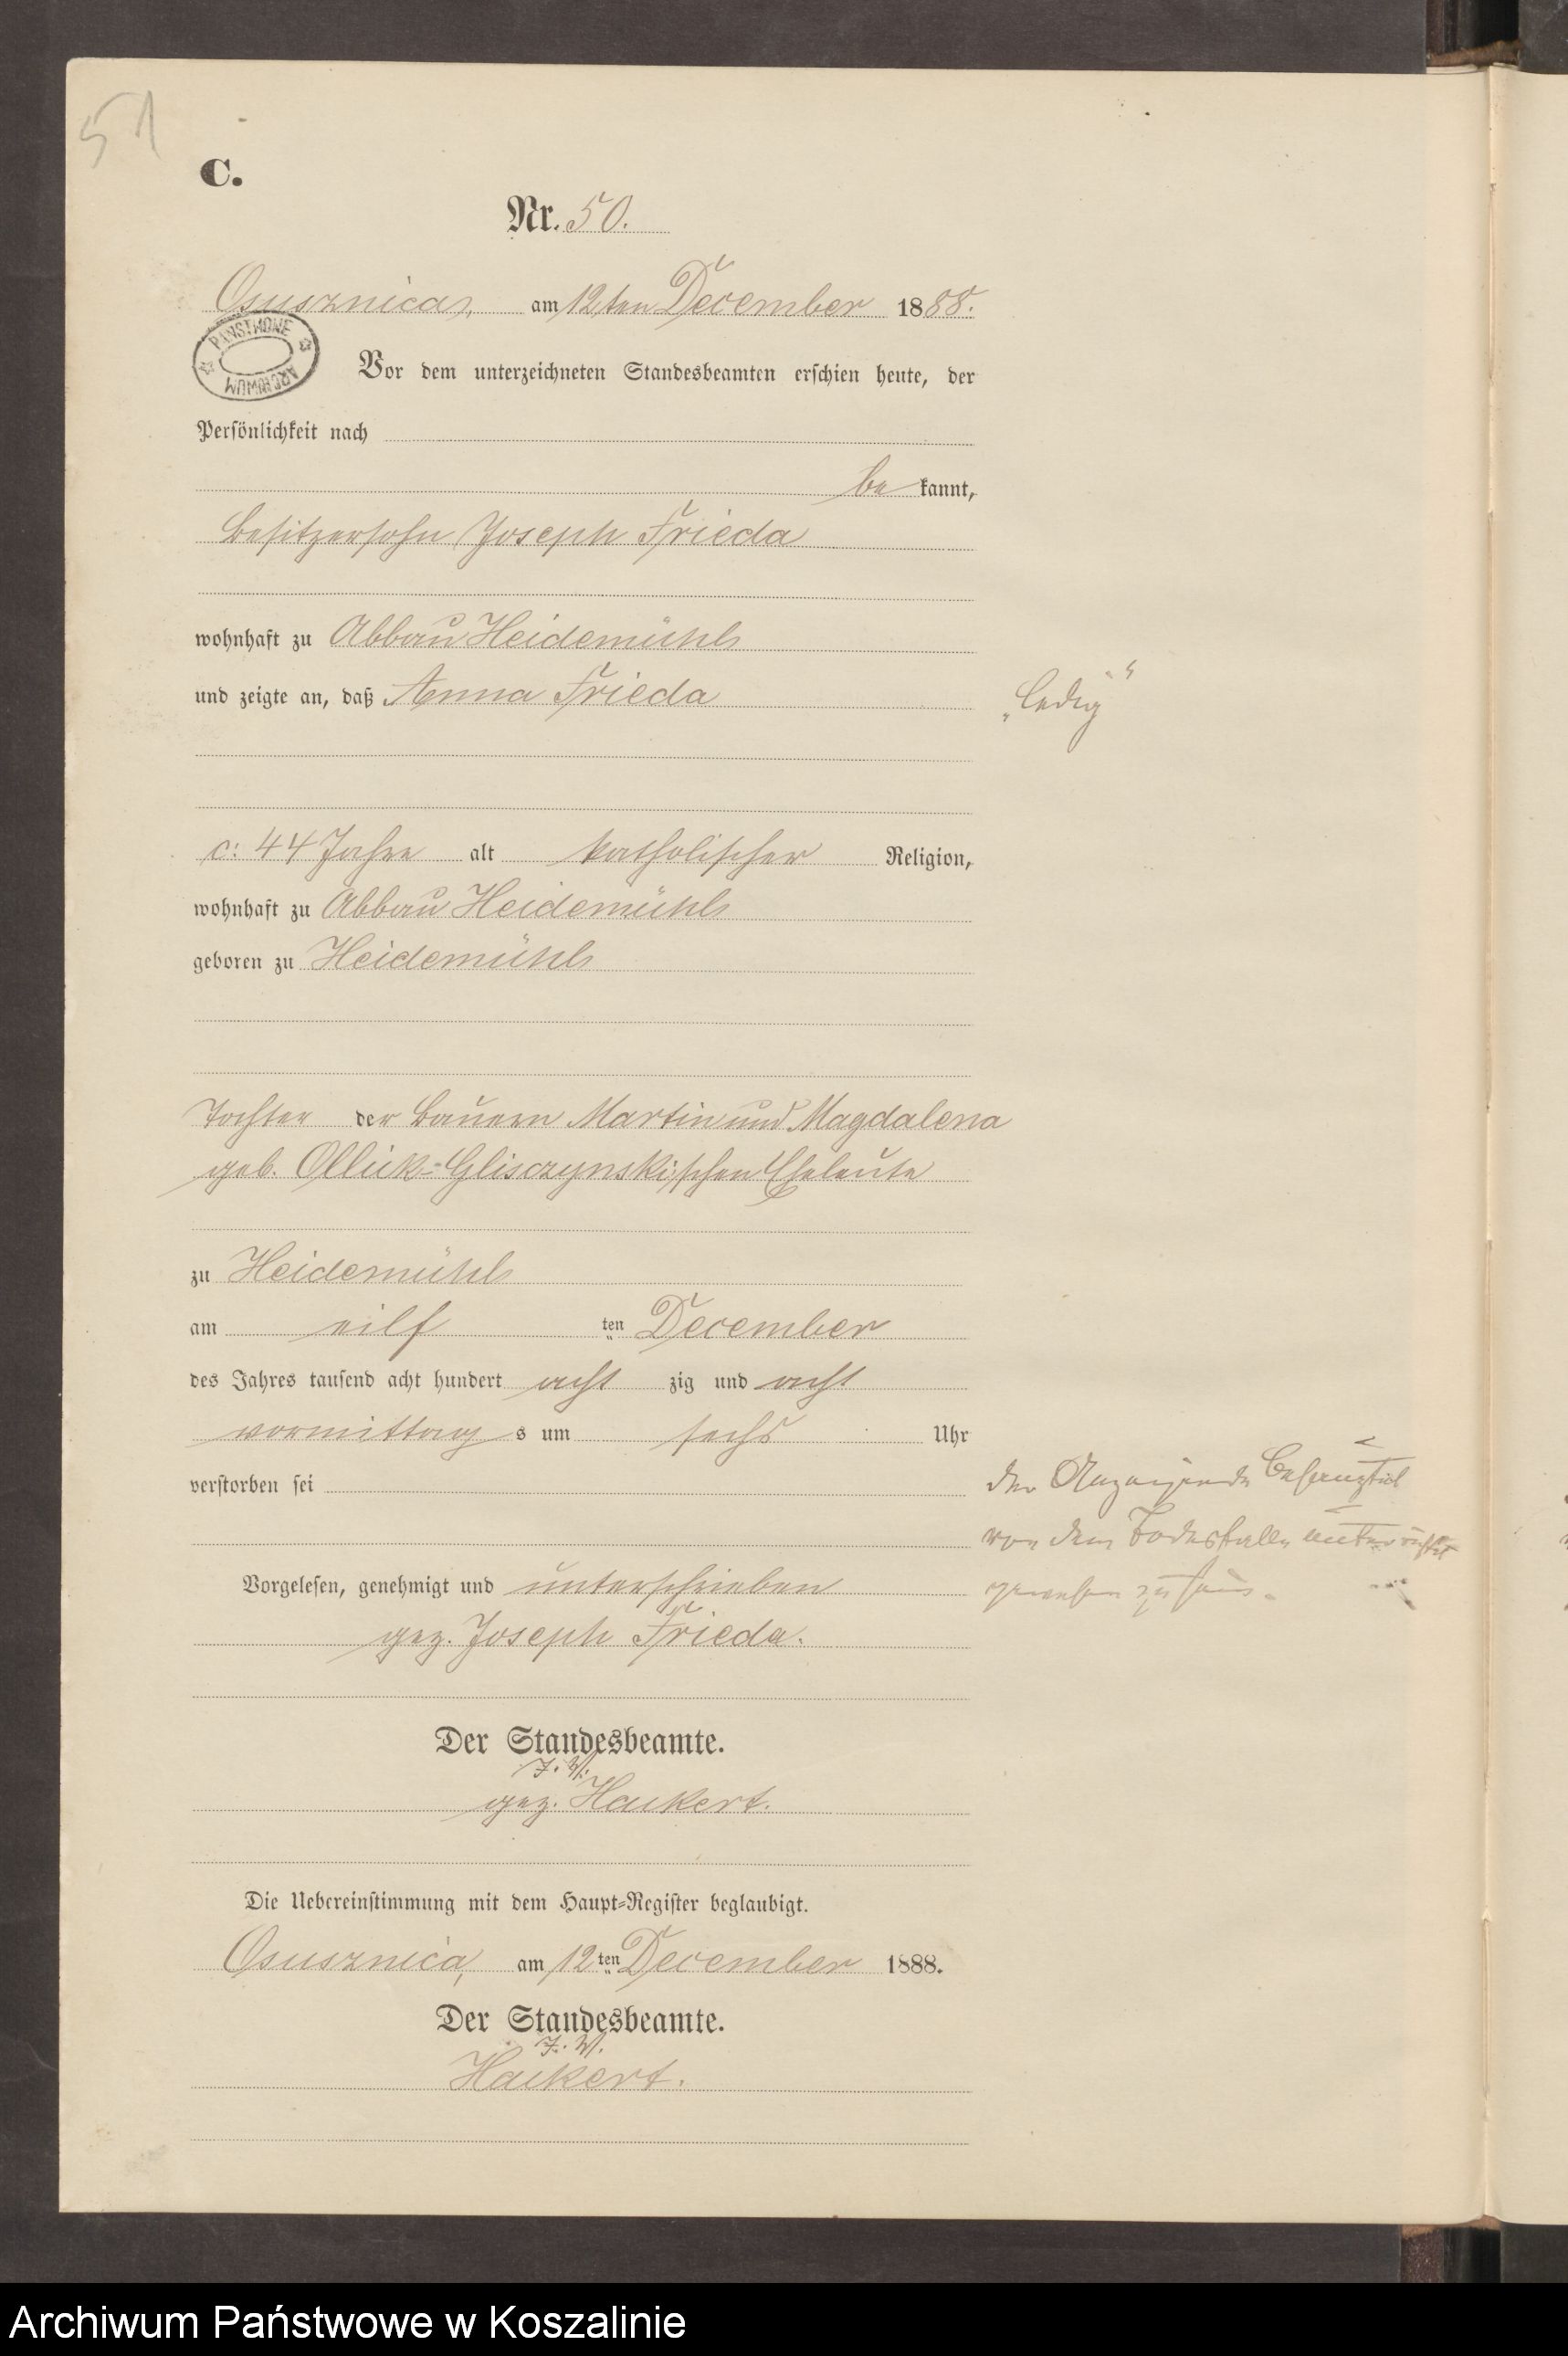 51
C.
Nr. 50.
Osusznica, am 12ten December 1888.
PAŃSTWOWE ARCHIWUM
Vor dem unterzeichneten Standesbeamten erschien heute, der
Persönlichkeit nach
be kannt,
Besitzersohn Joseph Frieda
wohnhaft zu Abbau Heidemühl
und zeigte an, daß Anna Frieda
„ledig“
c: 44 Jahre alt katholischer Religion,
wohnhaft zu Abbau Heidemühl
geboren zu Heidemühl
Tochter der Bauern Martin und Magdalena
geb. Ollick-Glisczynski'schen Eheleute
zu Heidemühl
am eilf ten December
des Jahres tausend acht hundert acht zig und acht
vormittag s um sechs Uhr
verstorben sei
der Anzeigende
von dem Todesfalle unterrichtet
gewesen zu sein.
Vorgelesen, genehmigt und unterschrieben
gez. Joseph Frieda.
Der Standesbeamte.
I. V.
gez. Haikert.
Die Uebereinstimmung mit dem Haupt-Register beglaubigt.
Osusznica, am 12ten December 1888.
Der Standesbeamte.
I. V.
Haikert.
Archiwum Państwowe w Koszalinie